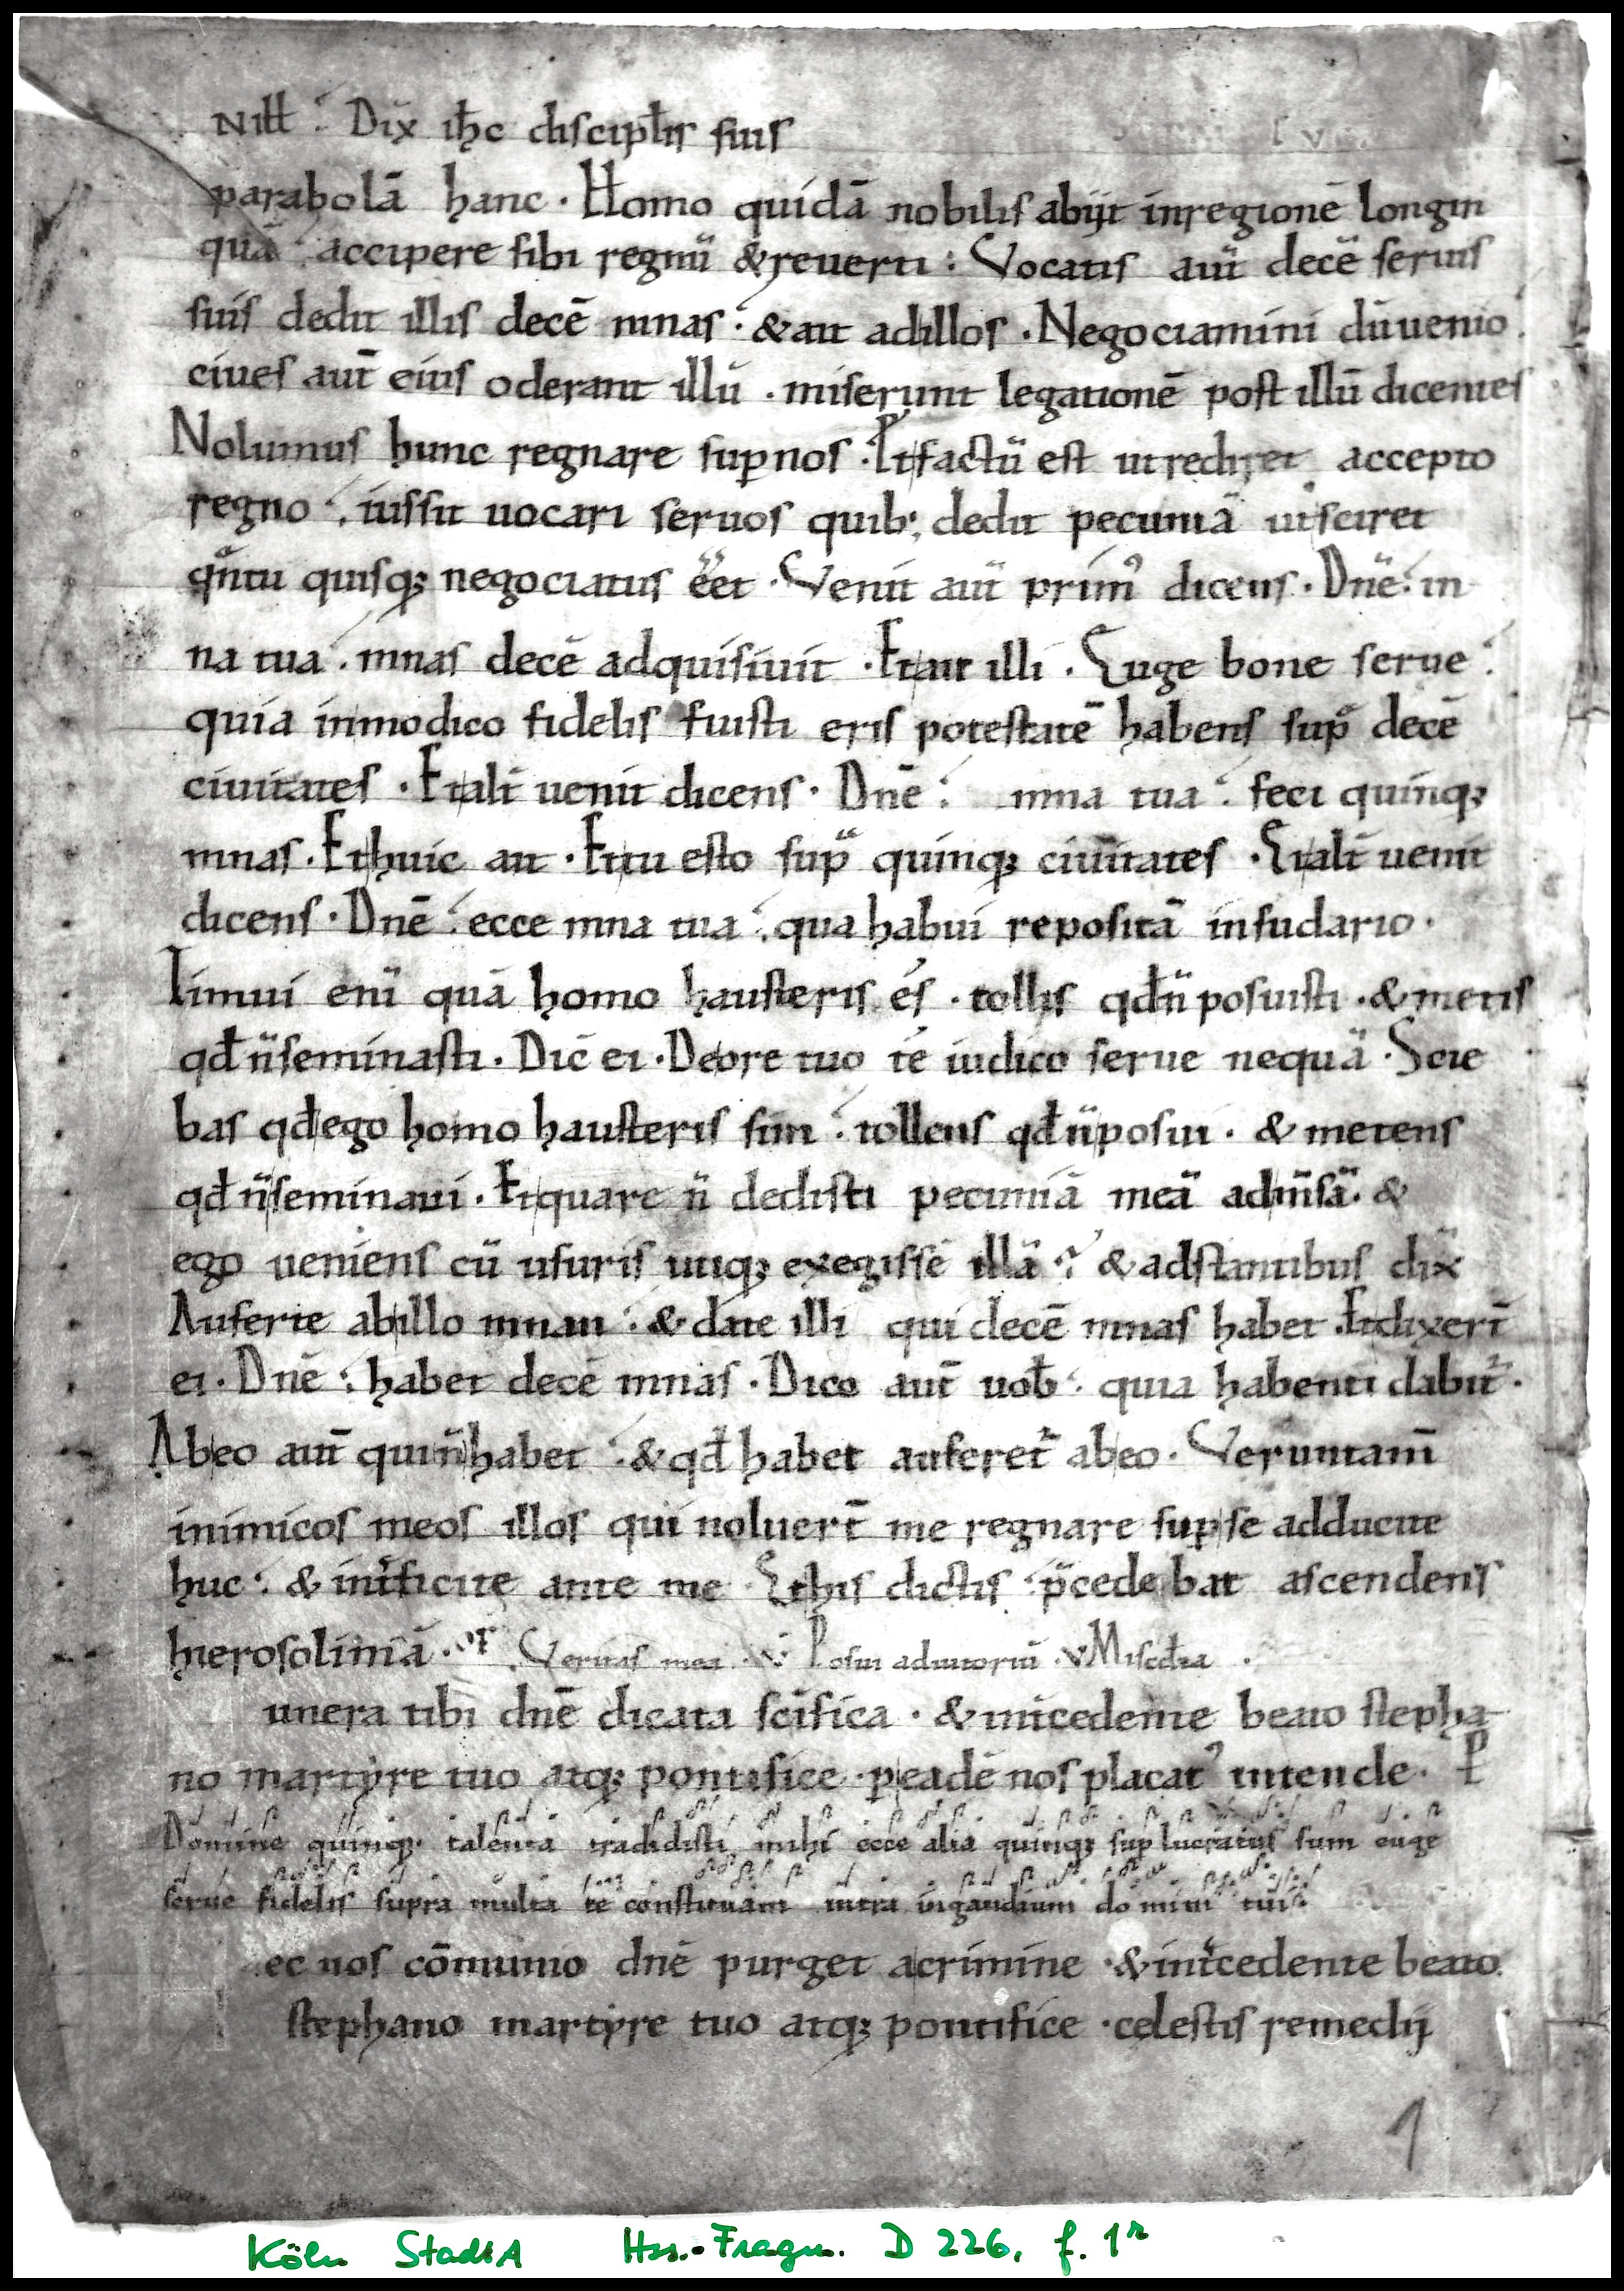 Nill̄ : Dix̄ ih̄c discipl̄is suis
parabolā hanc · Homo quidā nobilis abijt inregionē longin
quā : accipere sibi regnū & reuerti : Vocatis aūt decē seruis
suis dedit illis decē mnas : & ait adillos · Negociamini dūuenio ·
ciues aut̄ eius oderant illū · miserunt legationē post illū dicentes
Nolumus hunc regnare sup̄nos · Etfactū est utrediret accepto
regno : iussit uocari seruos quib; dedit pecuniā utsciret
qn̄tū quisq; negociatus ēēt · Venit aūt prim᾽ dicens · Dn̄e : m
na tua : mnas decē adquisiuit · Etait illi · Euge bone serue :
quia inmodico fidelis fuisti eris potestatē habens sup̄ decē
ciuitates · Etalt̄ uenit dicens · Dn̄e : mna tua : feci quinq;
mnas · Ethuic ait · Ettu esto sup̄ quinq; ciuitates · Etalt̄ uenit
dicens · Dn̄e : ecce mna tua : qua habui repositā insudario ·
Timui enī quā homo hausteris és · tollis qd̄n̄ posuisti · & metis
qd̄ n̄seminasti · Dic̄ ei · Deore tuo té iudico serue nequā · Scie
bas qd̄ego homo hausteris sum : tollens qd̄n̄posui · & metens
qd̄ n̄seminaui · Etquare n̄ dedisti pecuniā meā adm̄sā · &
ego ueniens cū usuris utiq; exegissē illā ? & adstantibus dix̄
Auferte abillo mnam : & date illi qui decē mnas habet · Etdixert̄
ei · Dn̄e : habet decē mnas · Dico aut̄ uob̄ : quia habenti dabit᾽ ·
Abeo aut̄ quin̄habet : & qd̄ habet auferet᾽ abeo · Veruntam̄
inimicos meos illos qui noluert̄ me regnare sup̄se adducite
huc : & int̄ficite ante me · Ethis dictis : p̄cedebat ascendens
hierosolimā · Of Veritas mea · V Posui adiutoriū · V Misedia ·
unera tibi dn̄e dicata sc̄ifica · & int̄cedente beato stepha-
no martyre tuo atq; pontifice · p̄eadē nos placat᾽ intende · P
Domine quinq; talenta tradidisti mihi ecce alia quinq; sup lucratus sum euge
serue fidelis supra multa te constituam intra ingaudium do mini tui :
ec nos cōmunio dn̄e purget acrimine · & int̄cedente beato
stephano martyre tuo atq; pontifice · celestis remedij
1
Köln StadtA Hss.-Fragm. D 226, f. 1r